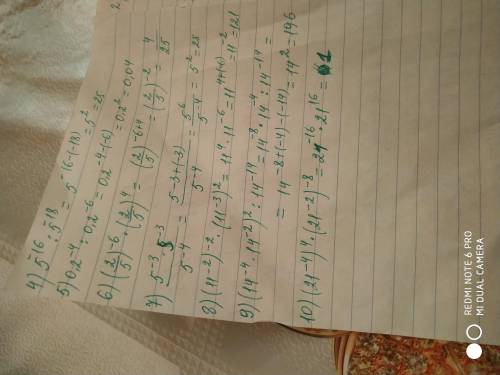 4) 5^-16 : 5^-18 = 5^-16-(-18) = 5^2 = 25
5) 0.2^-4 : 0.2^-6 = 0.2^-4-(-6) = 0.2^2 = 0.04
6) (2/5)^-6 · (2/5)^4 = (2/5)^-6+4 = (2/5)^-2 = 4/25
7) 5^-3 · 5^-3 / 5^-4 = 5^-3+(-3) / 5^-4 = 5^6 / 5^-4 = 5^2 = 25
8) (11^-2)^-2 · (11^-3)^2 = 11^4 · 11^-6 = 11^4+(-6) = 11^-2 = 121
9) (14^-4 · 14^-2)^2 : 14^-14 = 14^-8 · 14^-4 : 14^-14 =
= 14^-8+(-4)-(-14) = 14^2 = 196
10) (21^-4)^4 · (21^-2)^-8 = 21^-16 · 21^16 = 1
REDMI NOTE 6 PRO
MI DUAL CAMERA